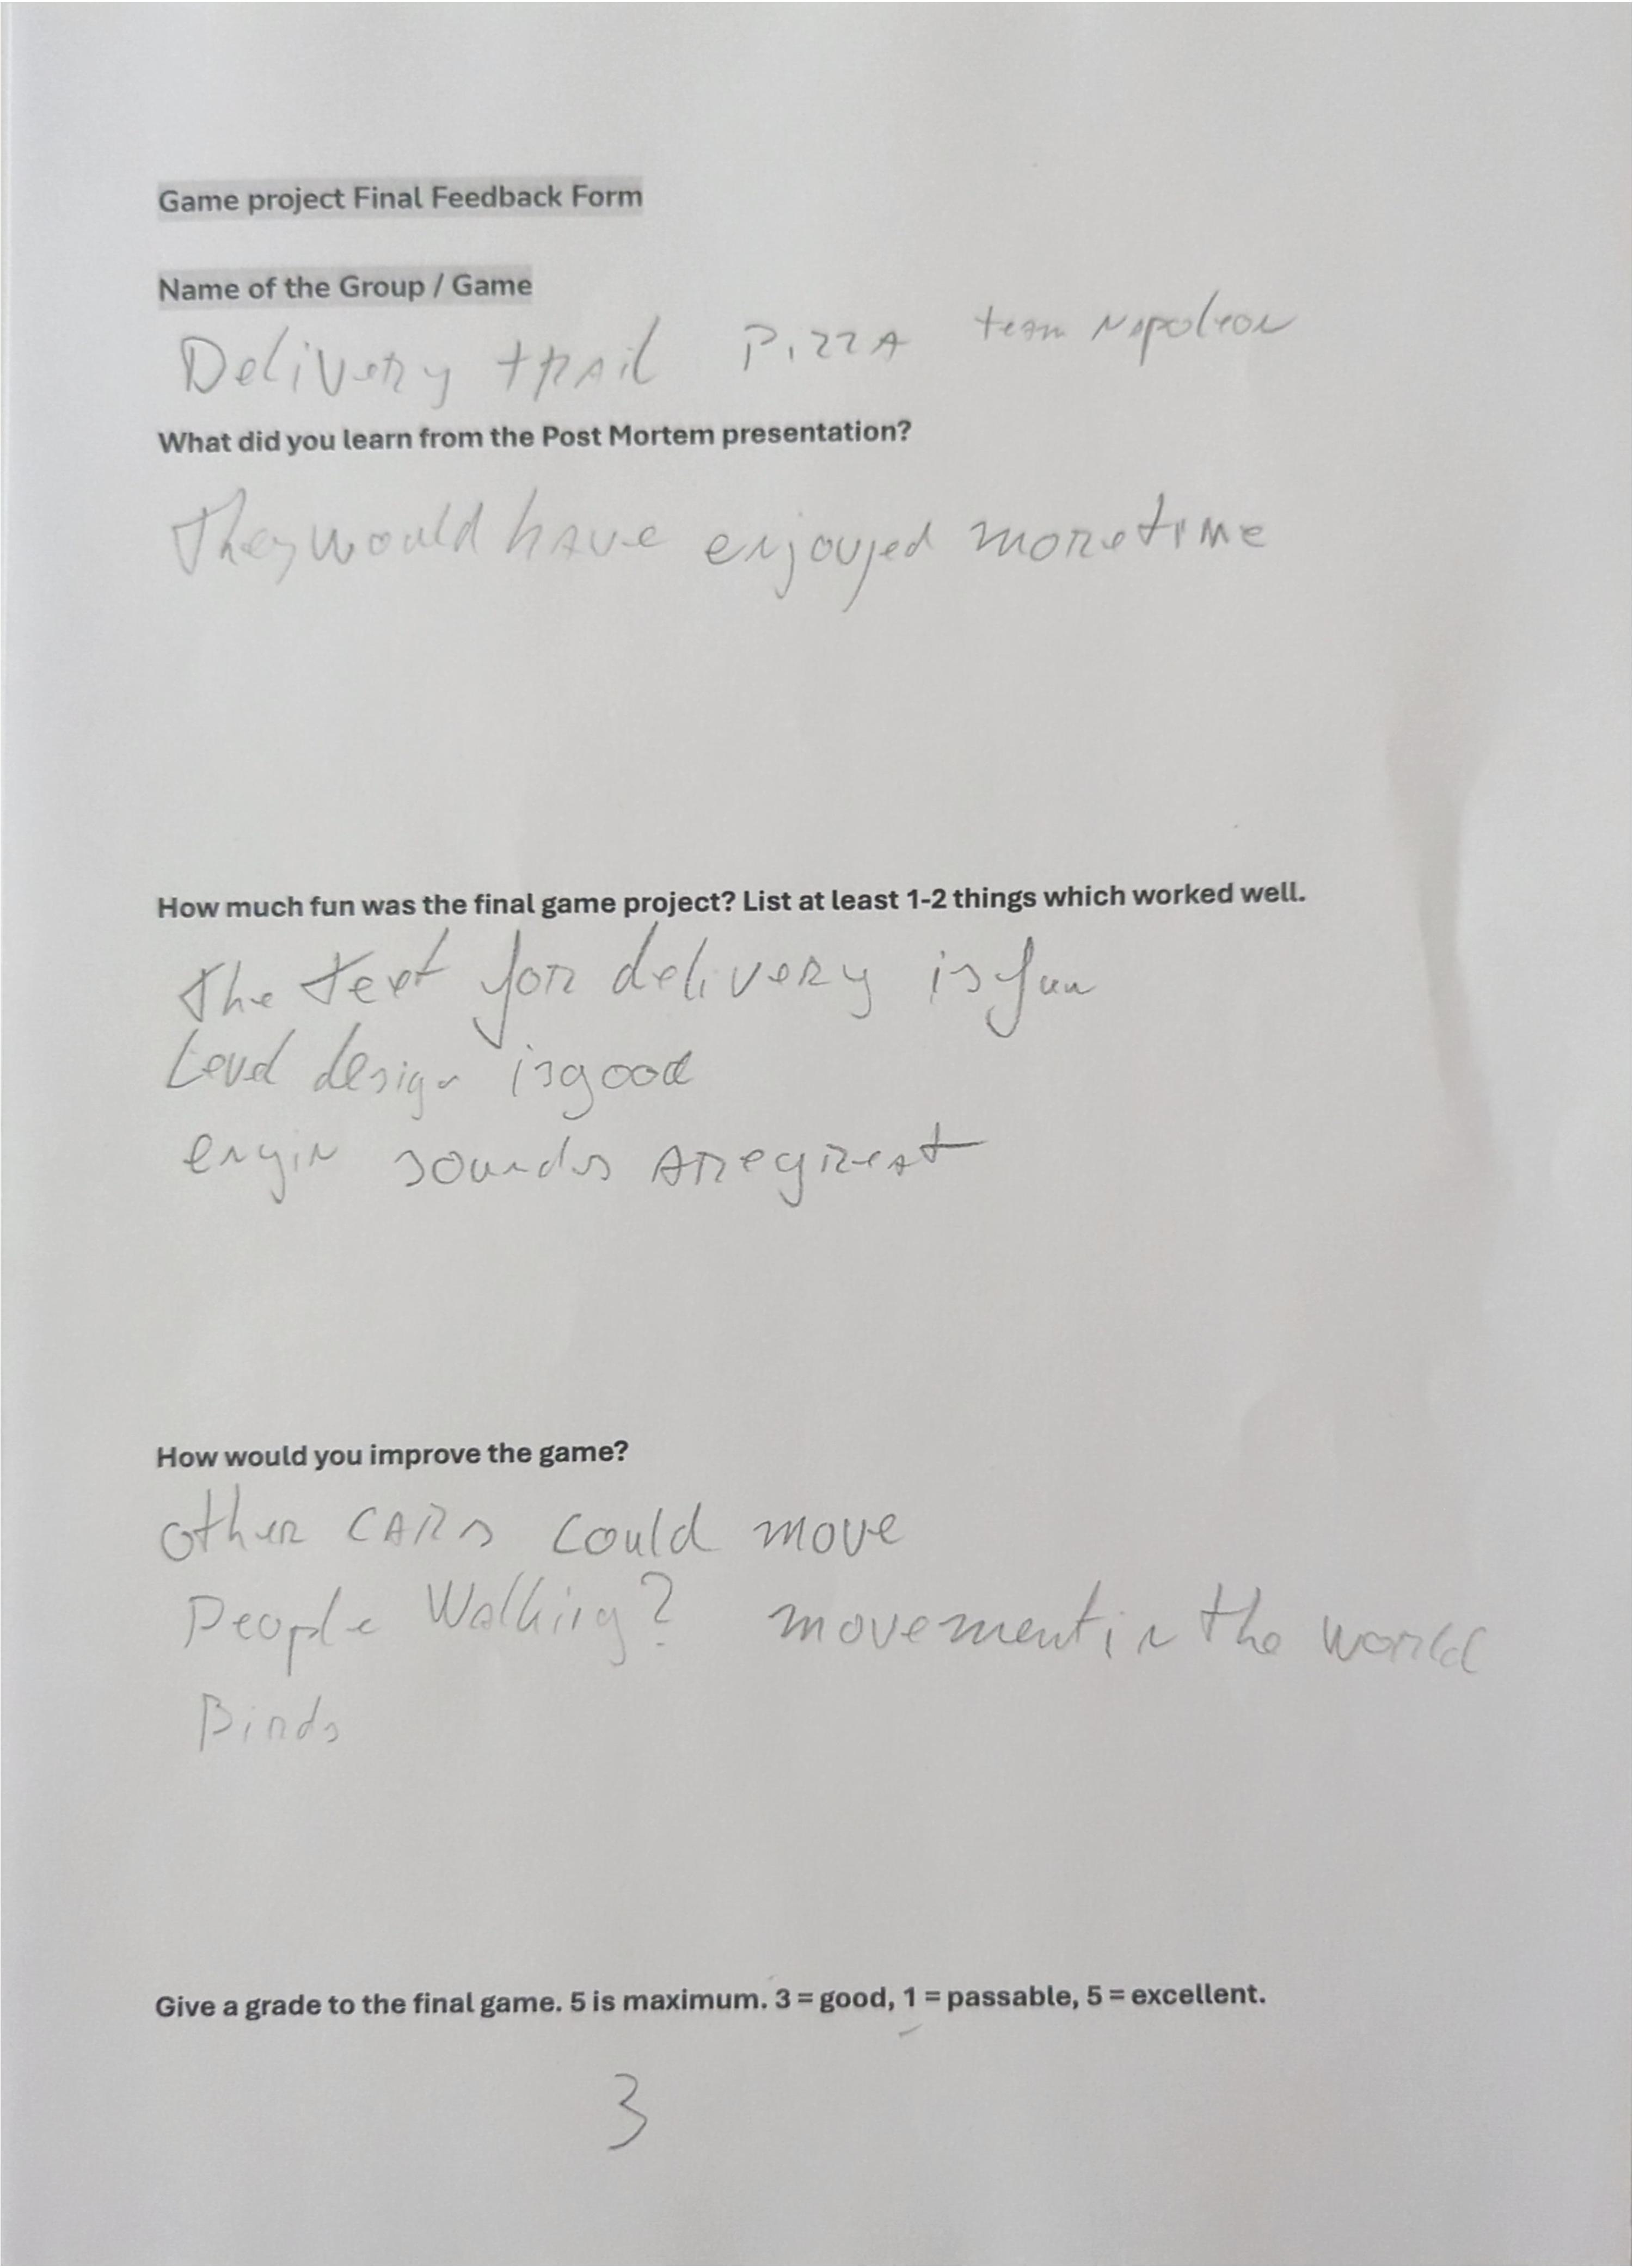 Game project Final Feedback Form
Name of the Group / Game
Delivery trail Pizza team Napoleon
What did you learn from the Post Mortem presentation?
They would have enjoyed more time
How much fun was the final game project? List at least 1-2 things which worked well.
The text for delivery is fun
Level design is good
engin sounds are great
How would you improve the game?
other cars could move
People Walking? movement in the world
Birds
Give a grade to the final game. 5 is maximum. 3 = good, 1 = passable, 5 = excellent.
3